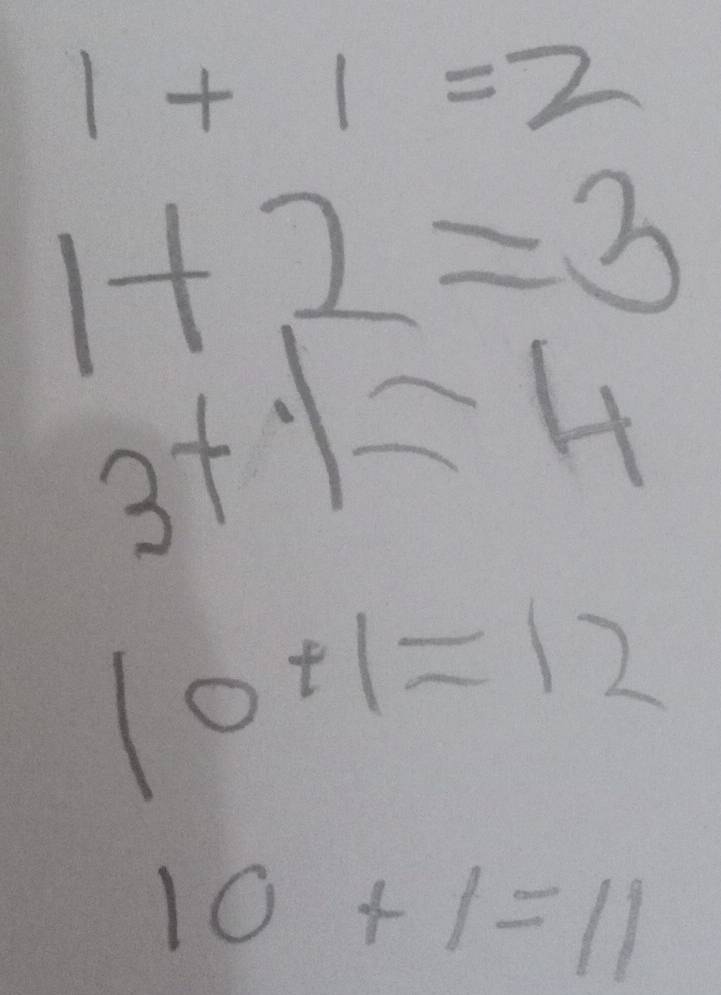 1 + 1 = 2
1 + 2 = 3
3 + 1 = 4
10 + 1 = 12
10 + 1 = 11